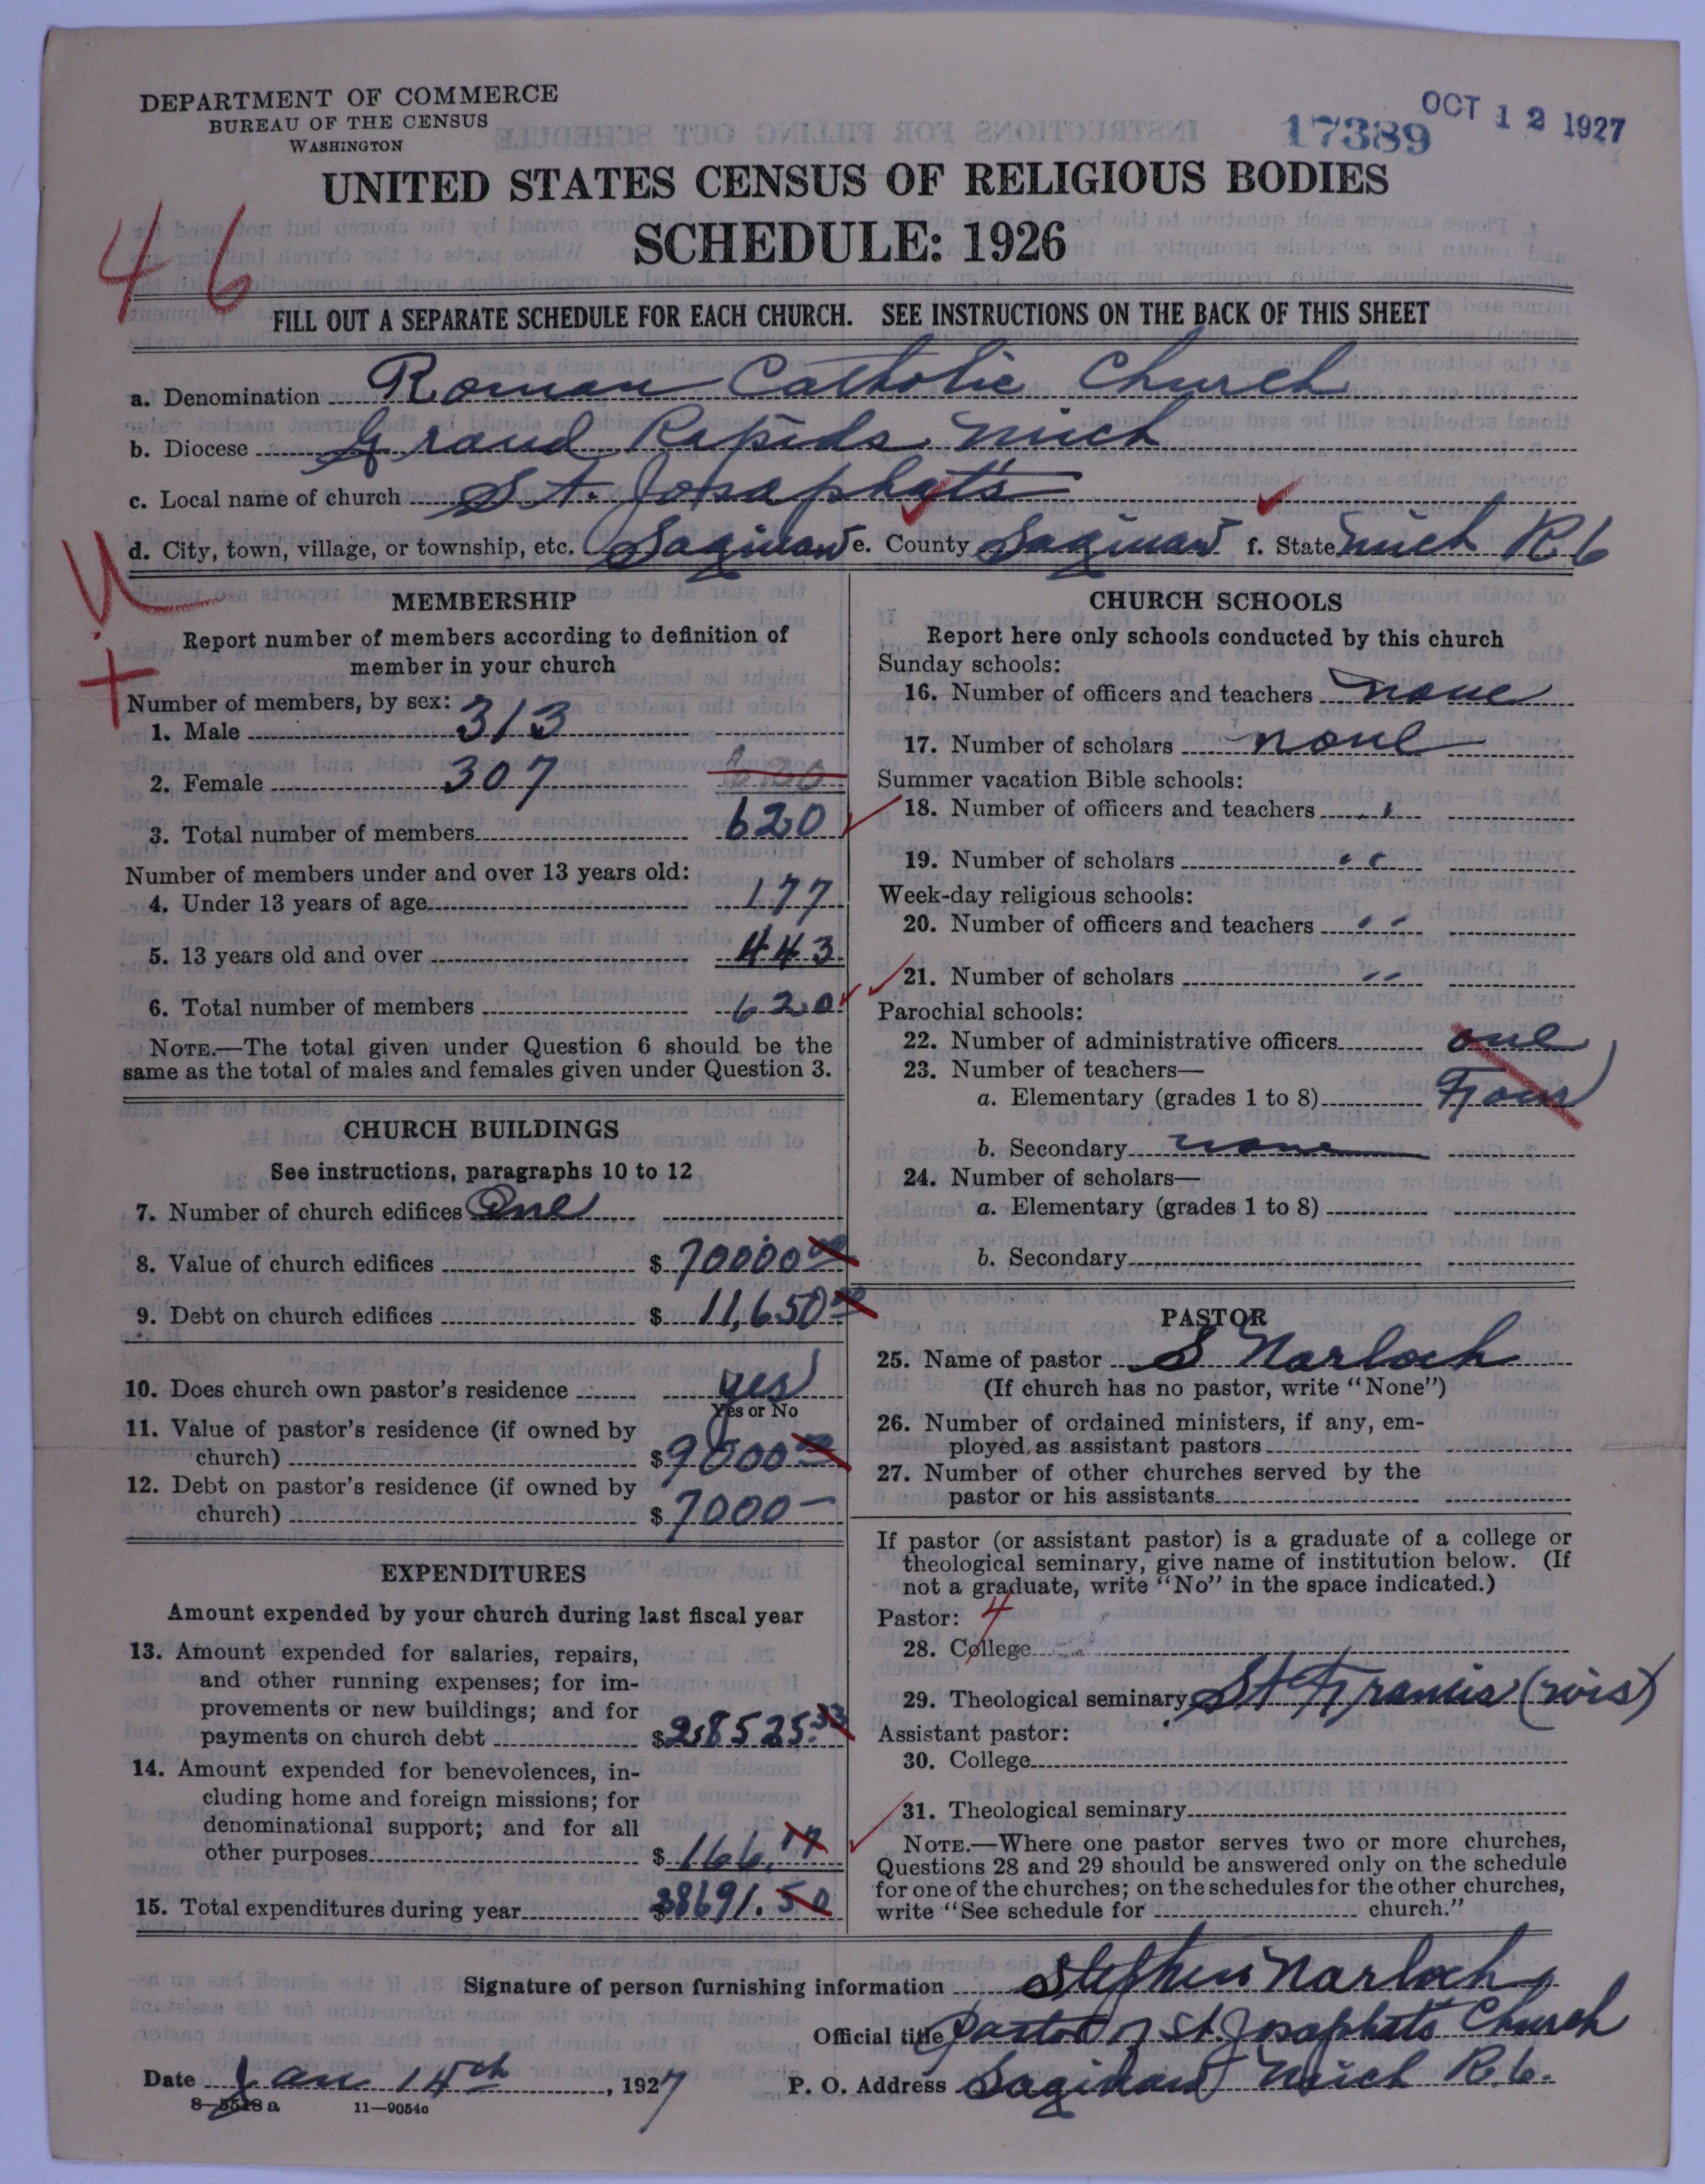 DEPARTMENT OF COMMERCE
BUREAU OF THE CENSUS
WASHINGTON
17389
OCT 12 1927
UNITED STATES CENSUS OF RELIGIOUS BODIES
SCHEDULE: 1926
46
FILL OUT A SEPARATE SCHEDULE FOR EACH CHURCH. SEE INSTRUCTIONS ON THE BACK OF THIS SHEET
a. Denomination Roman Catholic Church
b. Diocese Grand Rapids Mich
c. Local name of church St. Josaphats
d. City, town, village, or township, etc. Saginaw e. County Saginaw f. State Mich R 6
MEMBERSHIP
Report number of members according to definition of
member in your church
Number of members, by sex:
1. Male 313
2. Female 307 620
3. Total number of members 620
Number of members under and over 13 years old:
4. Under 13 years of age 177
5. 13 years old and over 443
6. Total number of members 620
NOTE.—The total given under Question 6 should be the
same as the total of males and females given under Question 3.
CHURCH BUILDINGS
See instructions, paragraphs 10 to 12
7. Number of church edifices One
8. Value of church edifices $ 70000 00
9. Debt on church edifices $ 11,650 00
10. Does church own pastor's residence yes
Yes or No
11. Value of pastor's residence (if owned by
church) $ 9000 00
12. Debt on pastor's residence (if owned by
church) $ 7000 —
EXPENDITURES
Amount expended by your church during last fiscal year
13. Amount expended for salaries, repairs,
and other running expenses; for im-
provements or new buildings; and for
payments on church debt $ 28525.33
14. Amount expended for benevolences, in-
cluding home and foreign missions; for
denominational support; and for all
other purposes $ 166.17
15. Total expenditures during year $ 28691.50
CHURCH SCHOOLS
Report here only schools conducted by this church
Sunday schools:
16. Number of officers and teachers none
17. Number of scholars none
Summer vacation Bible schools:
18. Number of officers and teachers "
19. Number of scholars "
Week-day religious schools:
20. Number of officers and teachers "
21. Number of scholars "
Parochial schools:
22. Number of administrative officers one
23. Number of teachers—
a. Elementary (grades 1 to 8) Four
b. Secondary none
24. Number of scholars—
a. Elementary (grades 1 to 8)
b. Secondary
PASTOR
25. Name of pastor S Narloch
(If church has no pastor, write "None")
26. Number of ordained ministers, if any, em-
ployed as assistant pastors
27. Number of other churches served by the
pastor or his assistants
If pastor (or assistant pastor) is a graduate of a college or
theological seminary, give name of institution below. (If
not a graduate, write "No" in the space indicated.)
Pastor: 4
28. College
29. Theological seminary St Francis (Wis)
Assistant pastor:
30. College
31. Theological seminary
NOTE.—Where one pastor serves two or more churches,
Questions 28 and 29 should be answered only on the schedule
for one of the churches; on the schedules for the other churches,
write "See schedule for church."
Signature of person furnishing information Stephen Narloch
Official title Pastor of St. Josaphats Church
Date Jan 14th, 1927 P. O. Address Saginaw Mich R. 6.
8—5518 a 11—9054c